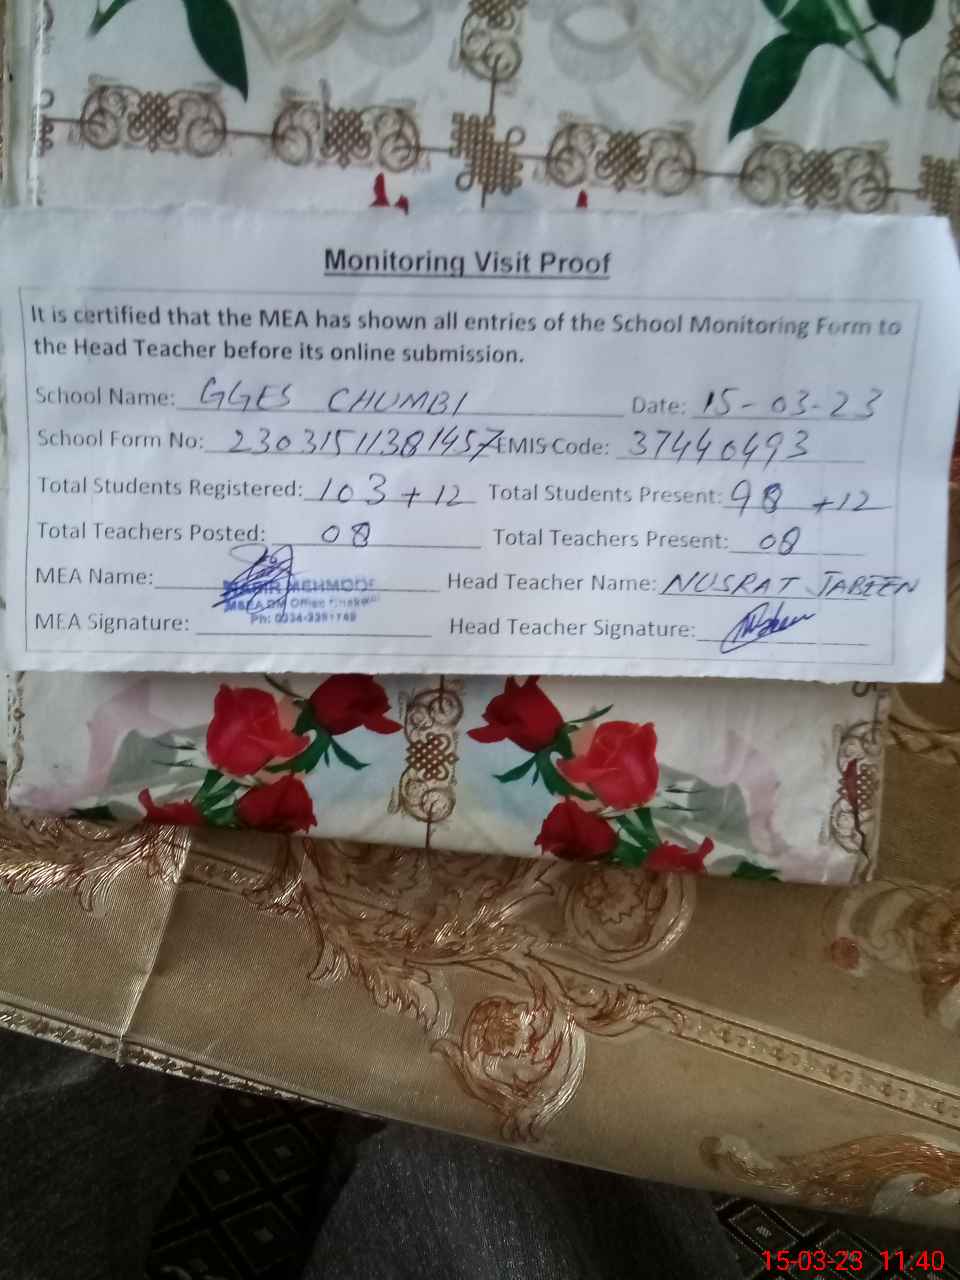 Monitoring Visit Proof
It is certified that the MEA has shown all entries of the School Monitoring Form to
the Head Teacher before its online submission.
School Name: GGES CHUMBI Date: 15-03-23
School Form No: 23031511381457 EMIS Code: 37440493
Total Students Registered: 103+12 Total Students Present: 98 +12
Total Teachers Posted: 08 Total Teachers Present: 08
MEA Name: MEHMOOD Head Teacher Name: NUSRAT JABEEN
MEA Signature: Head Teacher Signature:
15-03-23 11:40